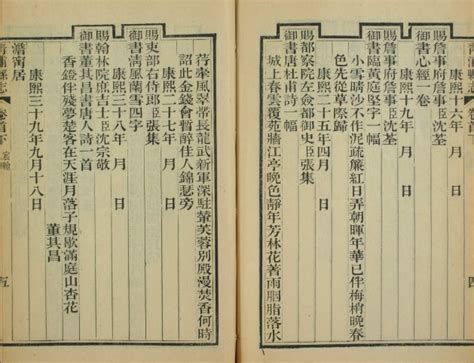 康熙十六年 月 日
賜詹事府詹事臣沈荃
御書心經一卷
康熙十九年 月 日
賜詹事府詹事臣沈荃
御書臨黃庭堅字一幅
小雪晴沙不作泥疏簾紅日弄朝暉年華已伴梅梢晚春
色先從草際歸
康熙二十五年四月 日
賜都察院左僉都御史臣張集
御書唐杜甫詩一幅
城上春雲覆苑牆江亭晚色靜年芳林花著雨胭脂落水
荇牽風翠帶長龍武新軍深駐輦芙蓉別殿漫焚香何時
詔此金錢會暫醉佳人錦瑟旁
康熙二十七年 月 日
賜吏部右侍郎臣張集
御書清風蘭雪四字
康熙三十八年 月 日
賜翰林院庶吉士臣沈宗敬
御書董其昌書唐人詩一首
香鐙伴殘夢楚客在天涯月落子規歇滿庭山杏花
董其昌
康熙三十九年九月十八日
澹甯居
青浦縣志 卷首下 宸翰 五